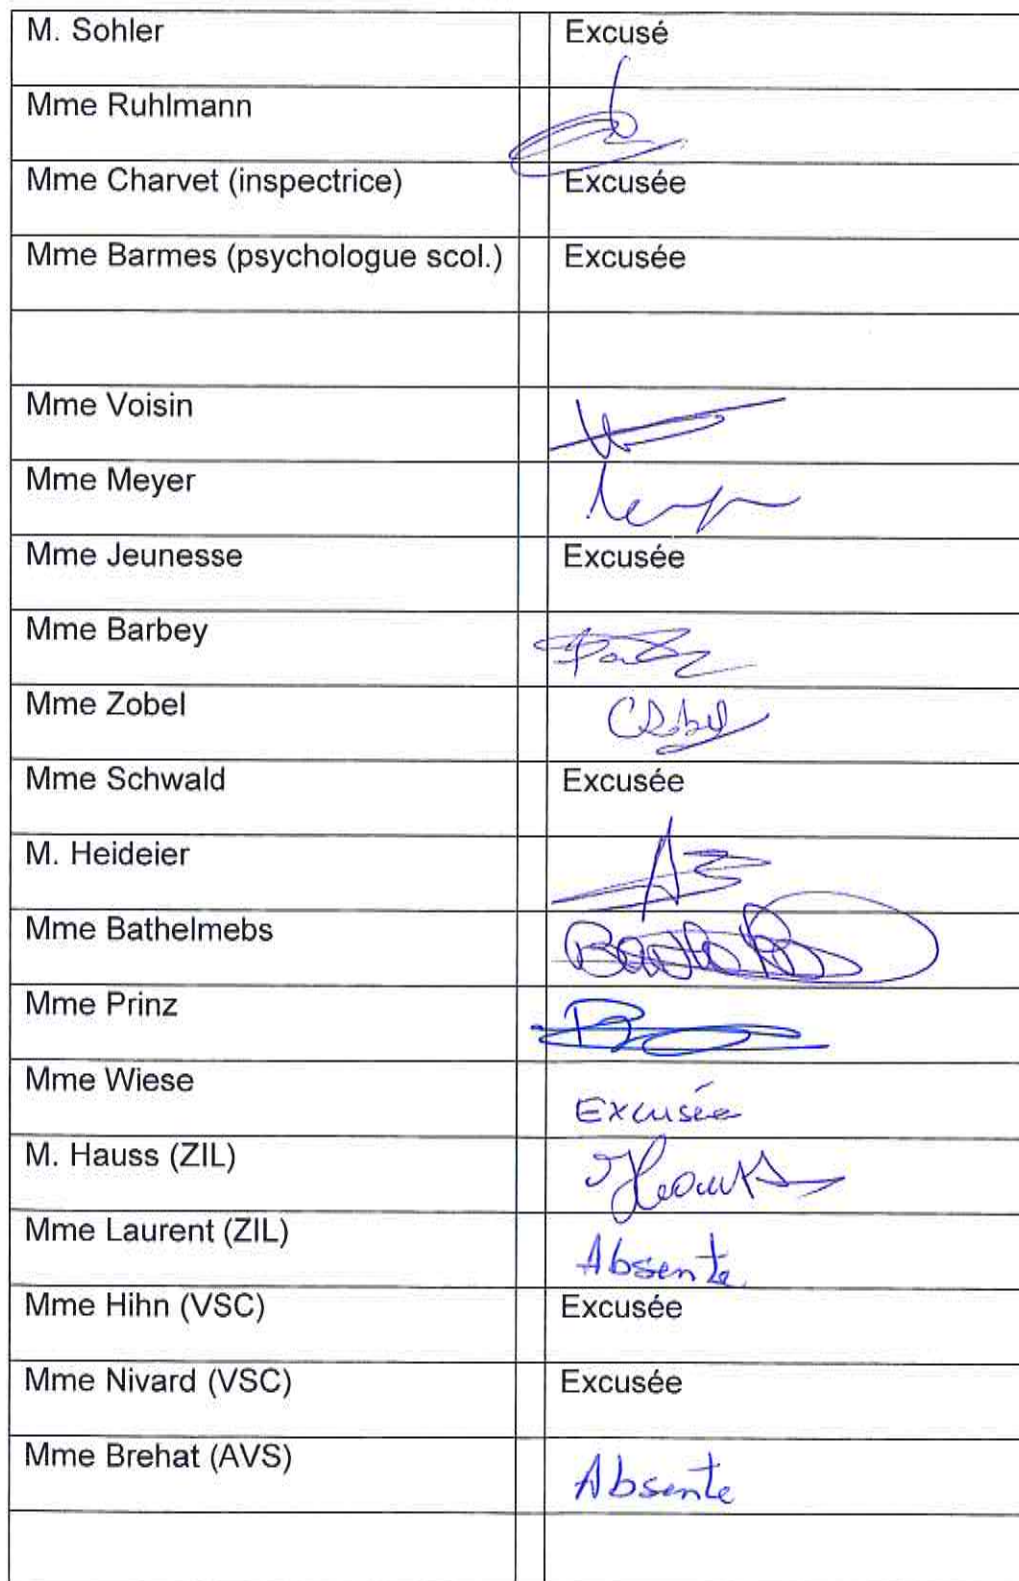 M. Sohler Excusé
Mme Ruhlmann
Mme Charvet (inspectrice) Excusée
Mme Barmes (psychologue scol.) Excusée
Mme Voisin
Mme Meyer
Mme Jeunesse Excusée
Mme Barbey
Mme Zobel
Mme Schwald Excusée
M. Heideier
Mme Bathelmebs
Mme Prinz
Mme Wiese Excusée
M. Hauss (ZIL)
Mme Laurent (ZIL) Absente
Mme Hihn (VSC) Excusée
Mme Nivard (VSC) Excusée
Mme Brehat (AVS) Absente